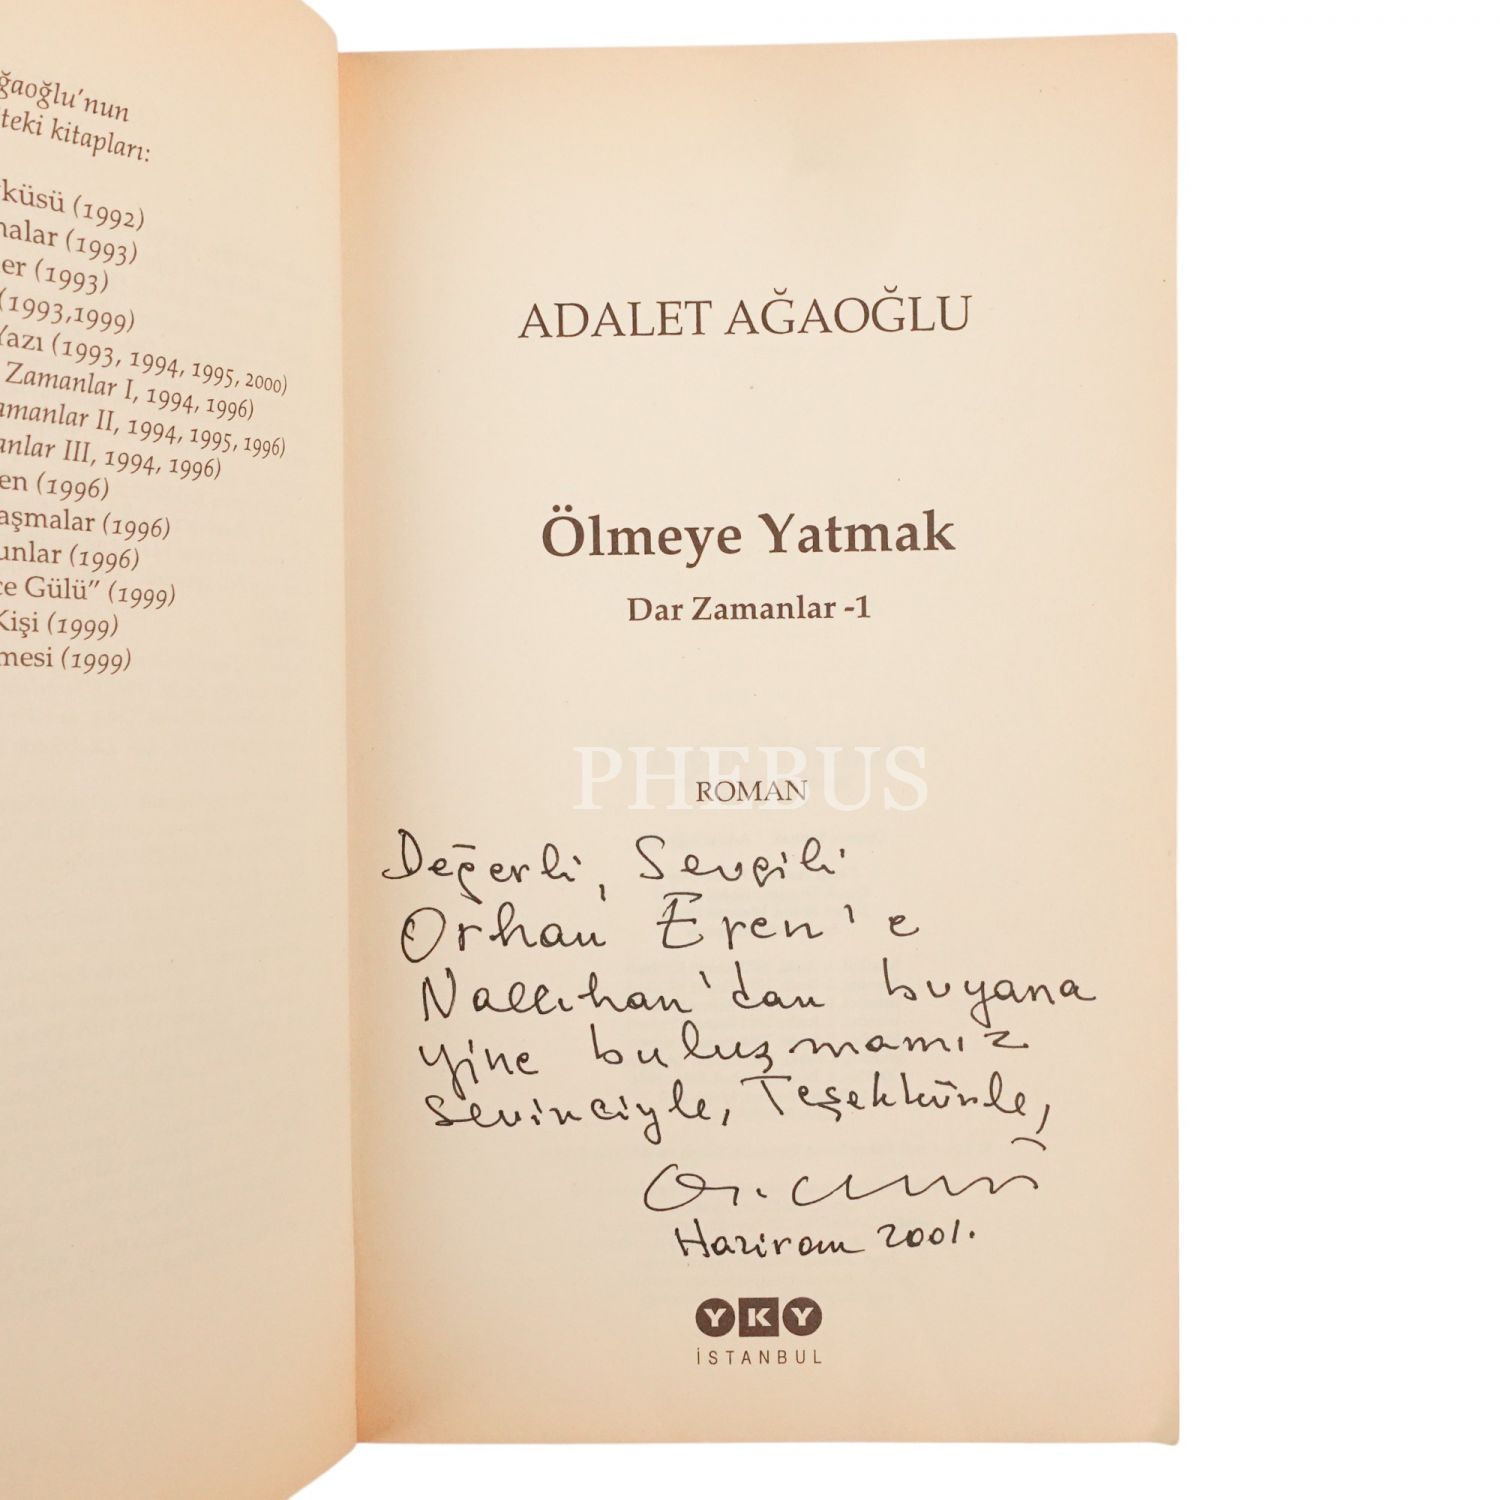 ğaoğlu'nun
teki kitapları:
küsü (1992)
alar (1993)
er (1993)
(1993,1999)
Yazı (1993, 1994, 1995, 2000)
Zamanlar I, 1994, 1996)
amanlar II, 1994, 1995, 1996)
anlar III, 1994, 1996)
en (1996)
aşmalar (1996)
unlar (1996)
ce Gülü" (1999)
Kişi (1999)
mesi (1999)
ADALET AĞAOĞLU
Ölmeye Yatmak
Dar Zamanlar -1
PHEBUS
ROMAN
Değerli, Sevgili
Orhan Eren'e
Nallıhan'dan buyana
yine buluşmamız
sevinciyle, Teşekkürle,
Haziran 2001.
YKY
İSTANBUL